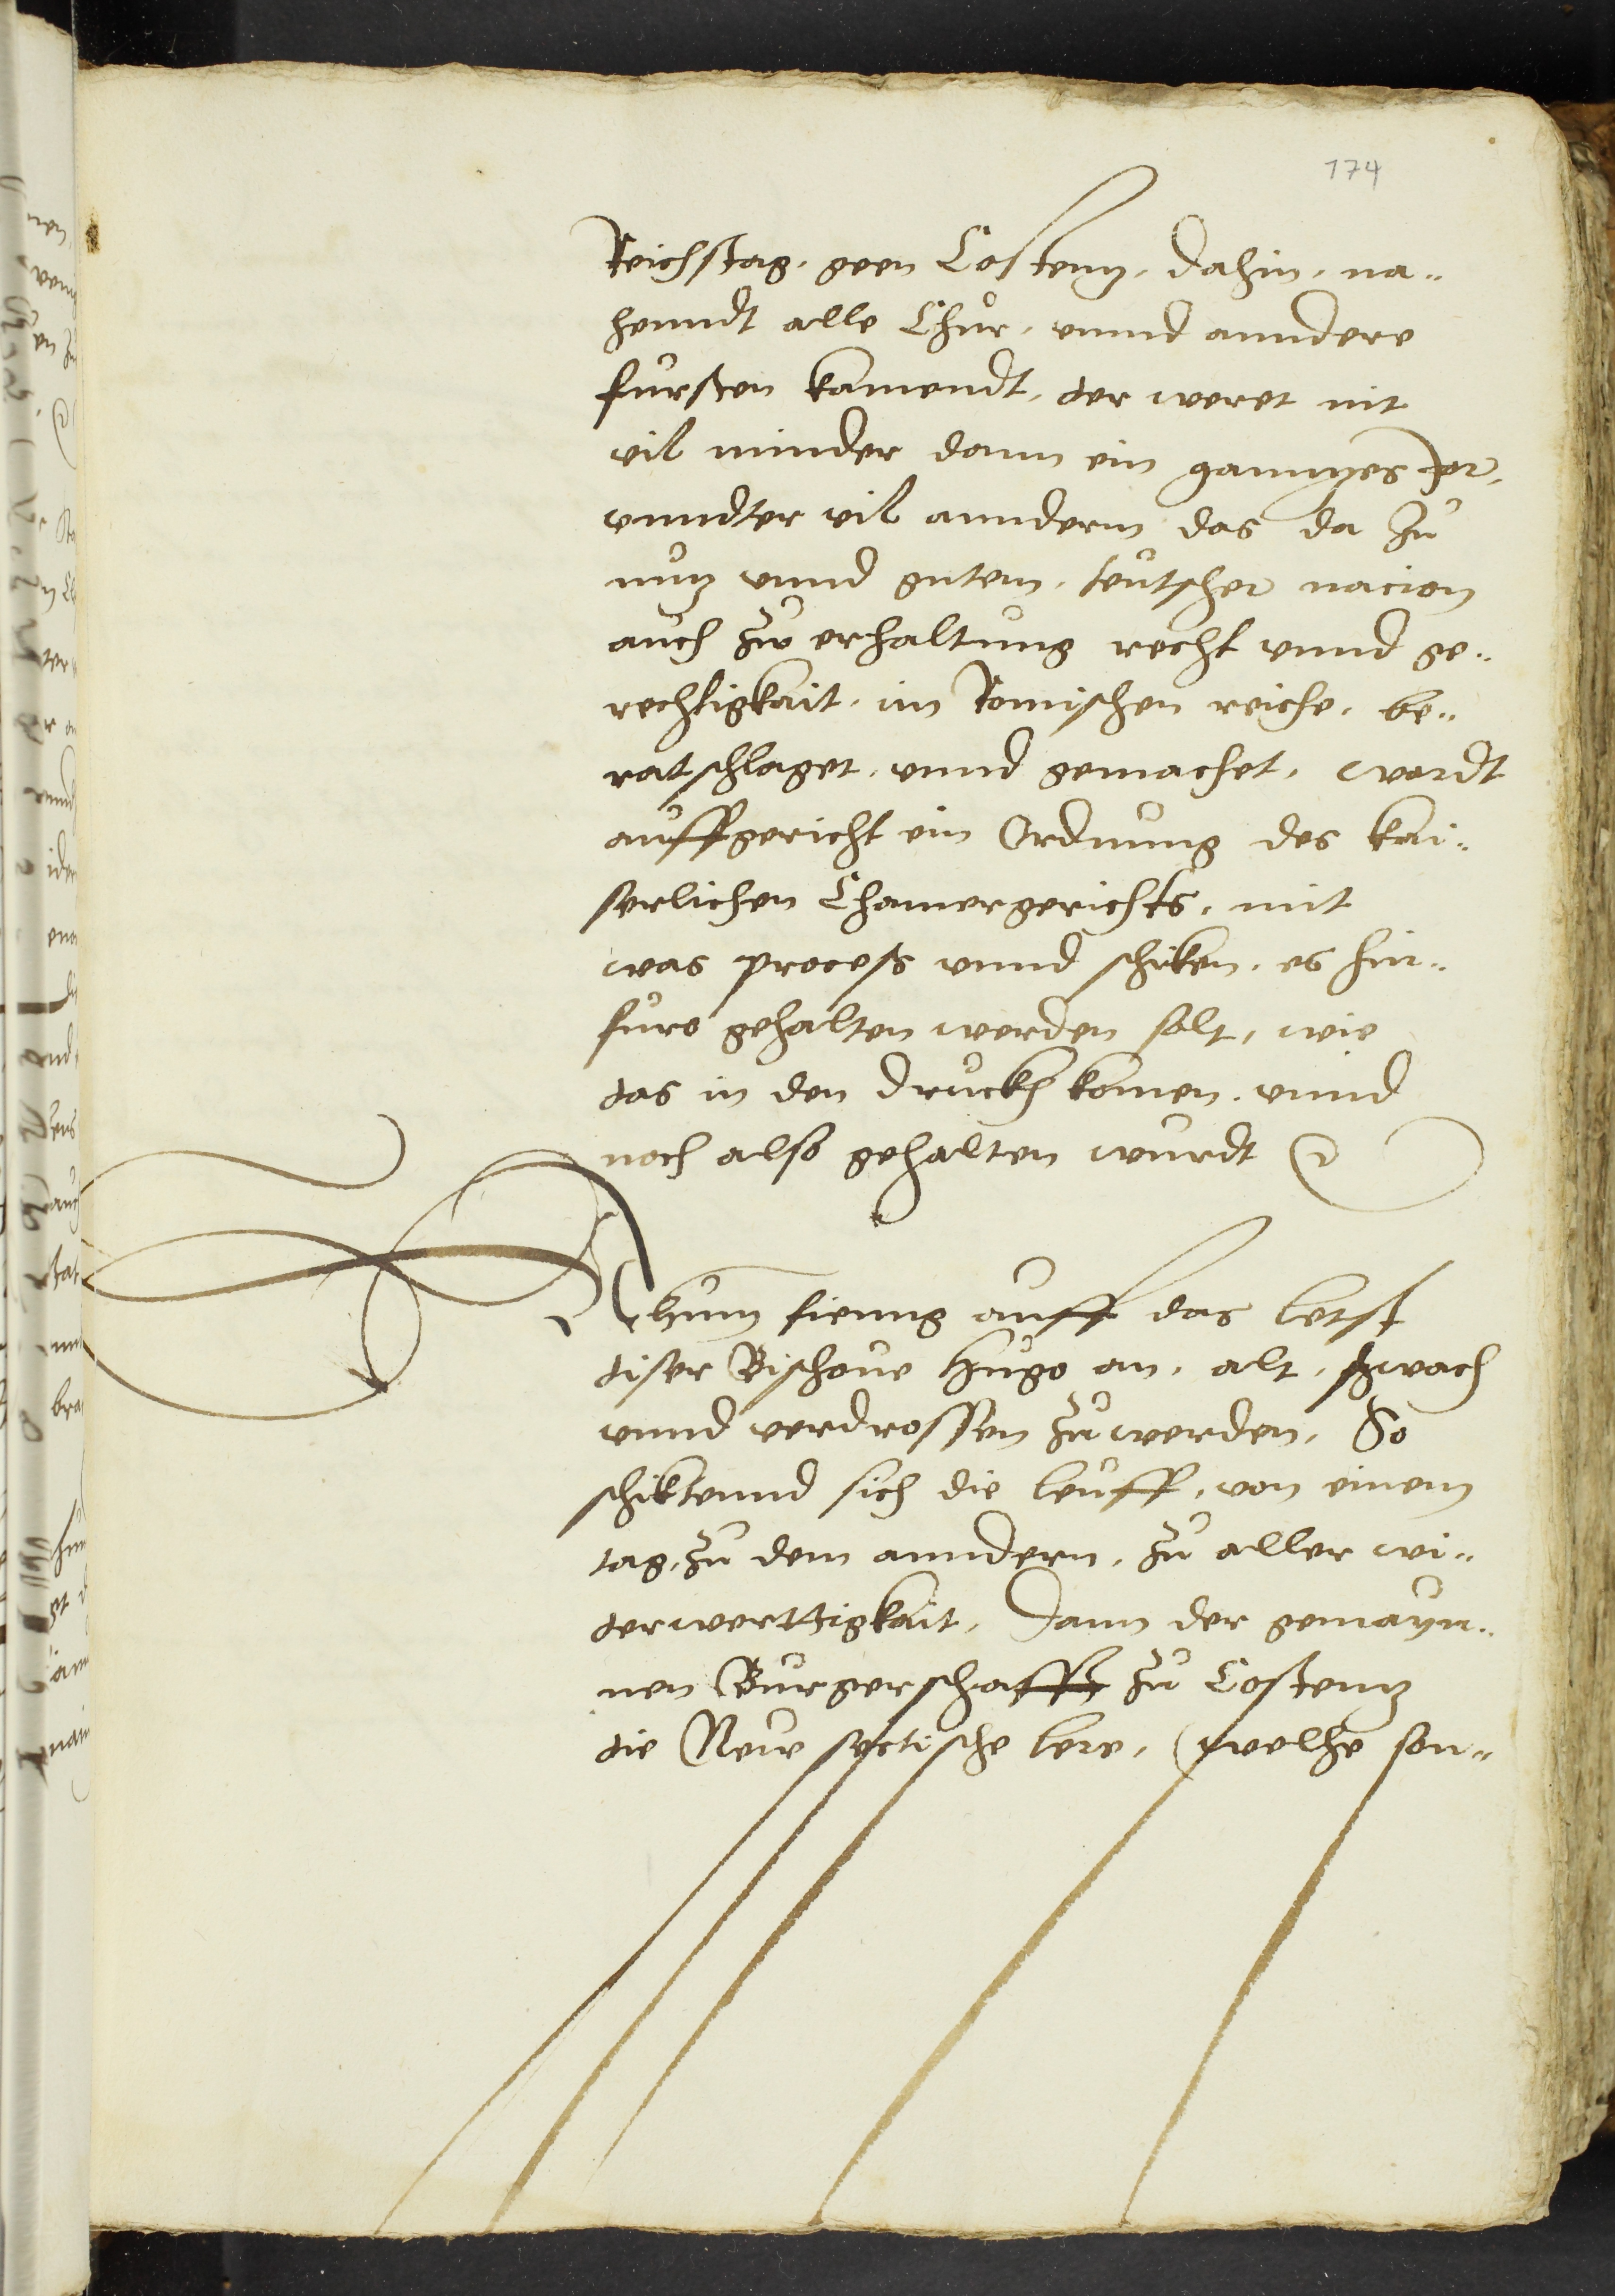 174
Reichstag, geen Costentz, dahin, na„
henndt alle Chur, vnnd anndere
fursten kamendt, der weret nit
vil minder dann ein ganntzes Jor,
vnndter vil annderm das da zu
nutz vnnd gutem, teutscher nacion
auch zu erhaltung recht vnnd ge„
rechtigkait, im Romischen reiche, be„
ratschlaget, vnnd gemachet, wardt
auffgericht ein Ordnung des kai„
serlichen Chamergerichts, mit
was process vnnd schiken, es hin„
furo gehalten werden solt, wie
das in den druckh komen, vnnd
noch also gehalten wurdt
Nhun fienng auff das letst
diser Bischoue Hugo an, alt, schwach
vnnd verdrossen zu werden, So
schiktennd sich die leuff, von einem
tag, zu dem anndern, zu aller wi„
derwerttigkait, Dann der gemayn„
nen Burgerschafft zu Costentz
die Neue sectische lere, (welhe son„